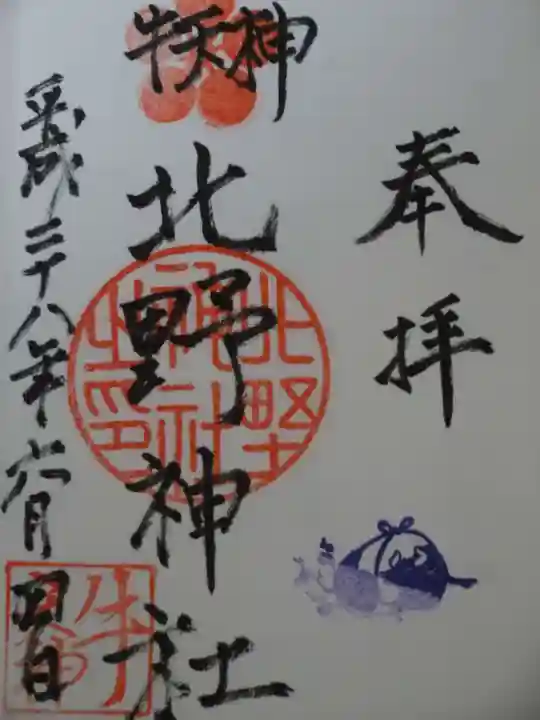 奉拝
牛天神
北野神社
平成二十八年六月 日
北野
神社
之印